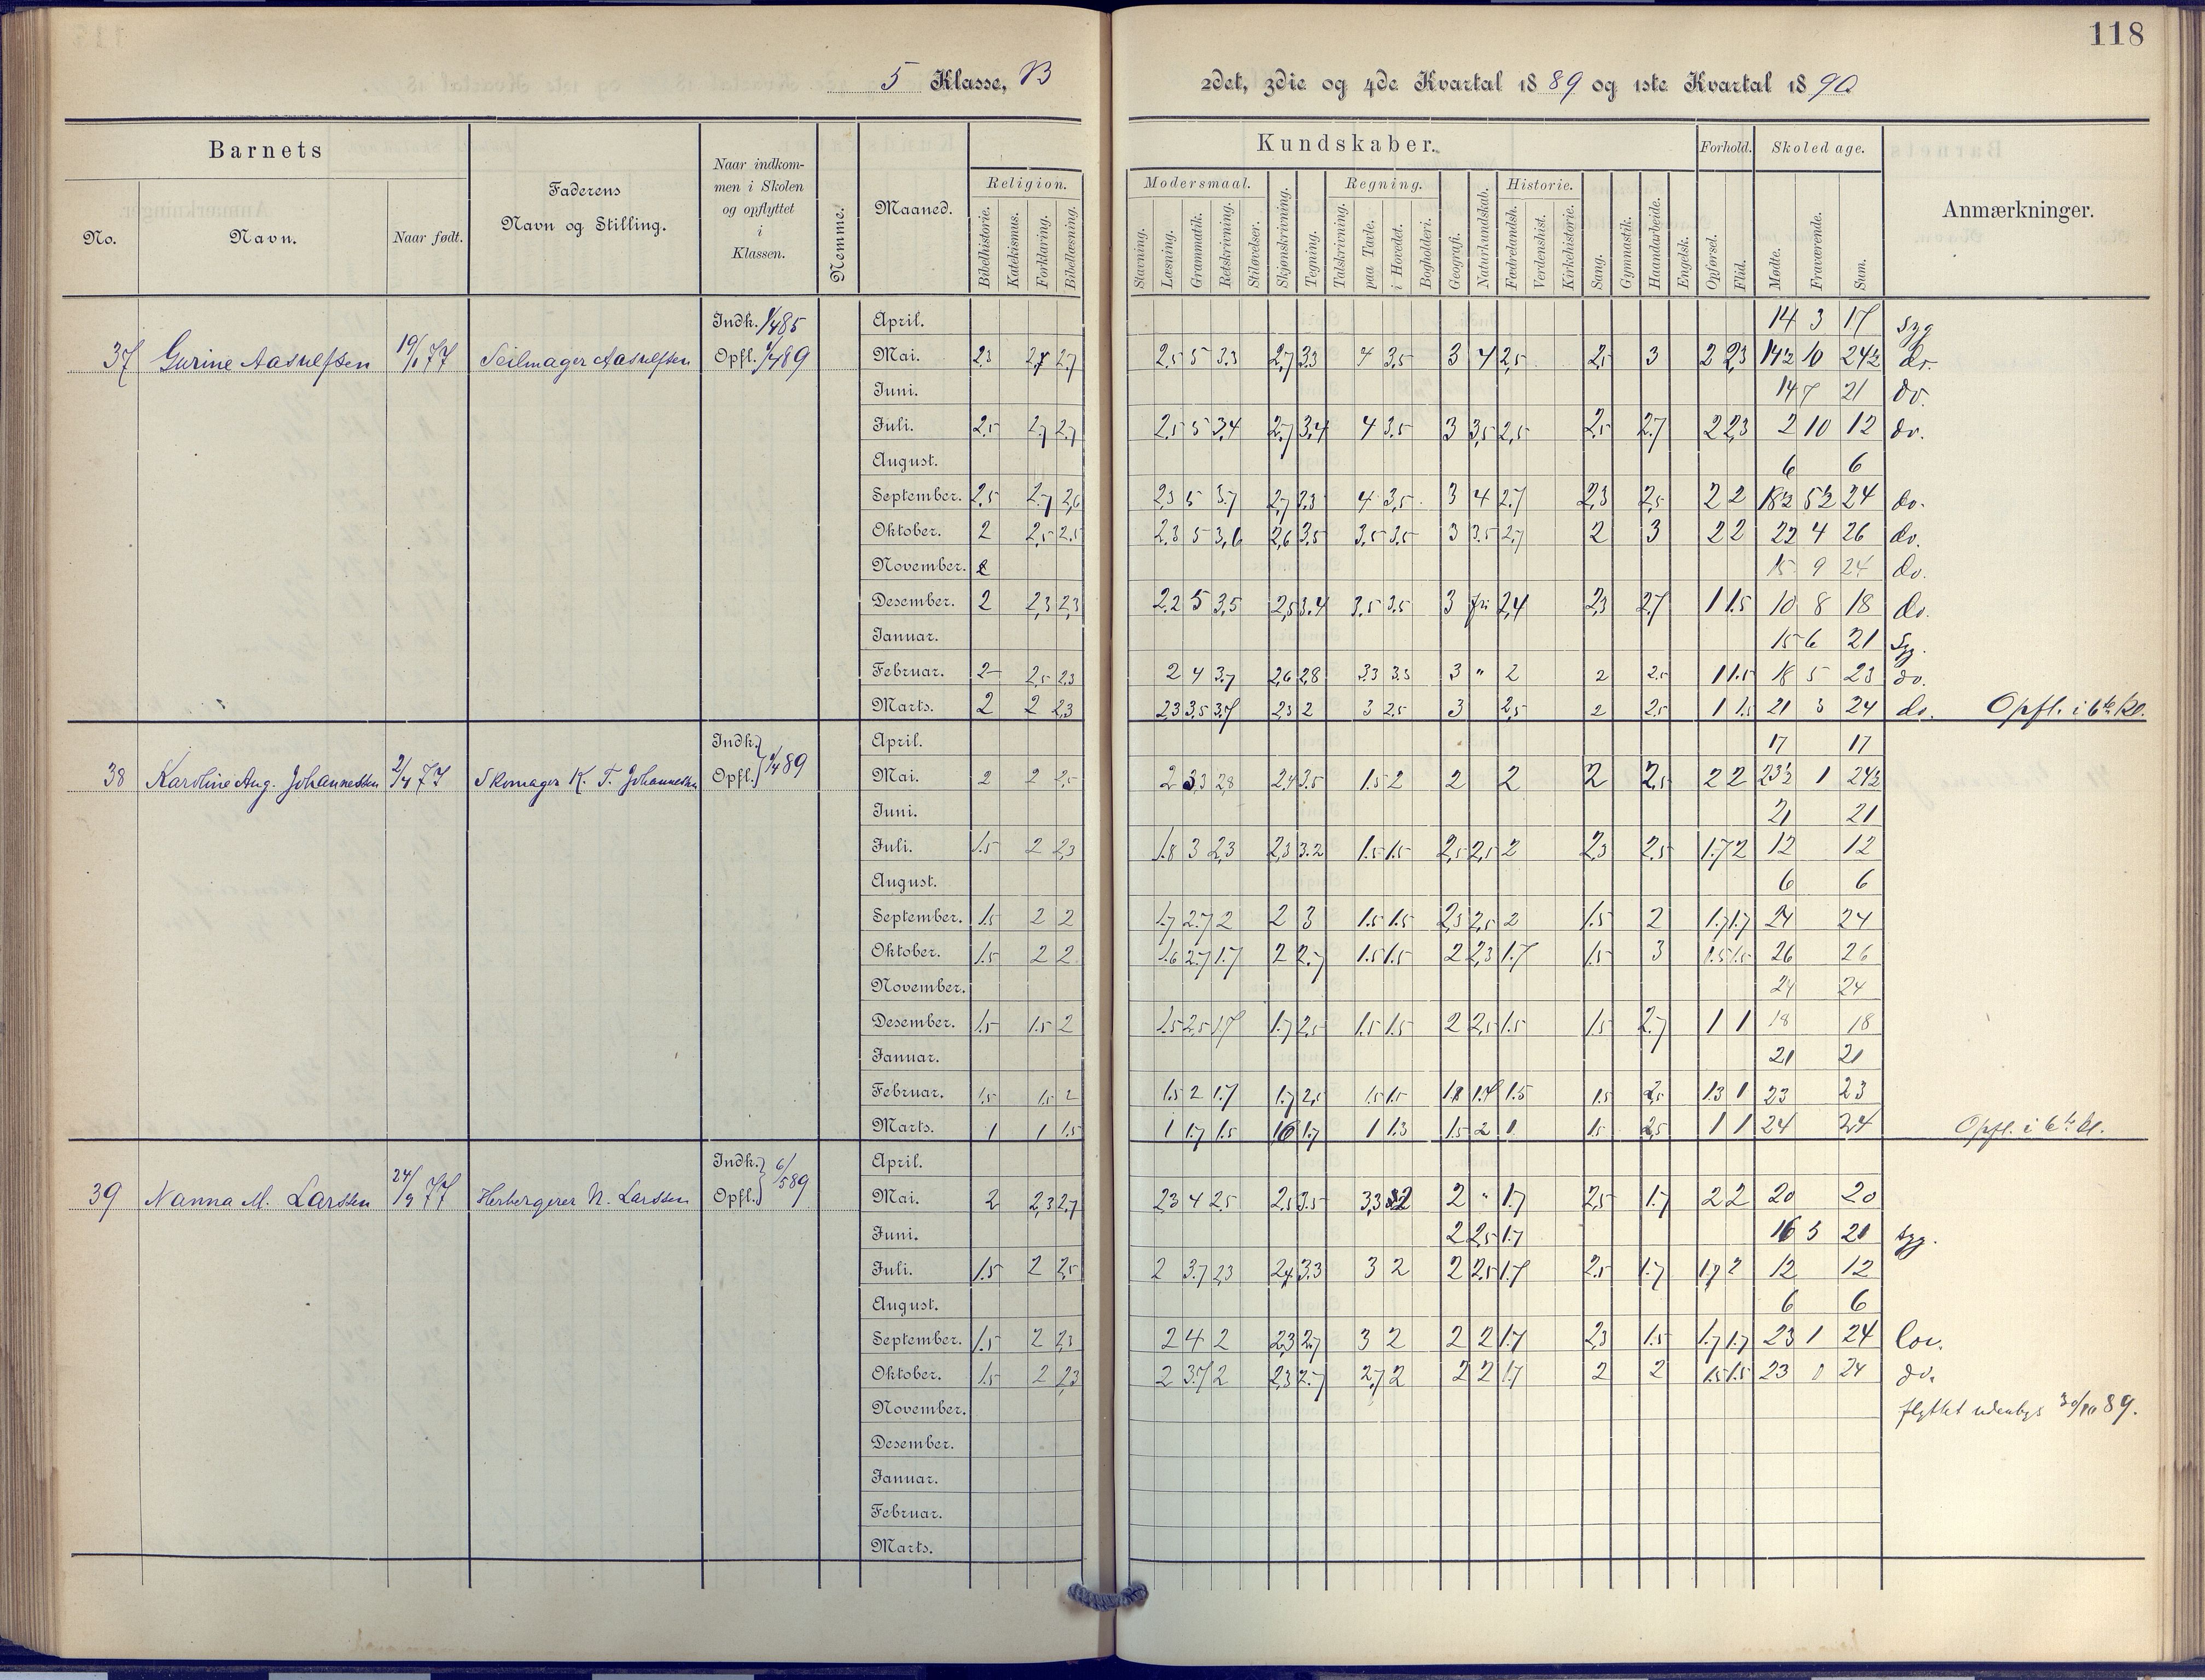 118
5 Klasse, B
2det, 3die og 4de Kvartal 1889 og 1ste Kvartal 1890
Barnets
No.
Navn.
Naar født.
Faderens
Navn og Stilling.
Naar indkom-
men i Skolen
og opflyttet
i
Klassen.
Nemme.
Maaned.
Kundskaber.
Religion.
Bibelhistorie.
Katekismus.
Forklaring.
Bibellæsning.
Modersmaal.
Stavning.
Læsning.
Grammatik.
Retskrivning.
Stiløvelser.
Skjønskrivning.
Tegning.
Regning.
Talskrivning.
paa Tavle.
i Hovedet.
Bogholderi.
Geografi.
Naturkundskab.
Historie.
Fædrelandsh.
Verdenshist.
Kirkehistorie.
Sang.
Gymnastik.
Haandarbeide.
Engelsk.
Forhold.
Opførsel.
Flid.
Skoledage.
Mødte.
Fraværende.
Sum.
Anmærkninger.
Indk. 1/4 85 April. 14 3 17 Syg
37 Gurine Aasulfsen 77 Seilmager Aasulfsen Opfl. 1/4 89 Mai. 2,3 2,7 2,7 2,5 5 3,3 2,7 3,3 4 3,5 3 4 2,5 2,5 3 2 2,3 14½ 10 24½ do.
Juni. 14 7 21 do.
Juli. 2,5 2,7 2,7 2,5 5 3,4 2,7 3,4 4 3,5 3 3,5 2,5 2,5 2,7 2 2,3 2 10 12 do.
August. 6 6
September. 2,5 2,7 2,6 2,3 5 3,7 2,7 3,3 4 3,5 3 4 2,7 2,3 2,5 2 2 18½ 5½ 24 do.
Oktober. 2 2,5 2,5 2,3 5 3,6 2,6 3,5 3,5 3,5 3 3,5 2,7 2 3 2 2 22 4 26 do.
November. 15 9 24 do.
Desember. 2 2,3 2,3 2,2 5 3,5 2,5 3,4 3,5 3,5 3 fri 2,4 2,3 2,7 1 1,5 10 8 18 do.
Januar. 15 6 21 Syg.
Februar. 2 2,5 2,3 2 4 3,7 2,6 2,8 3,3 3,3 3 " 2 2 2,5 1 1,5 18 5 23 do.
Marts. 2 2 2,3 2,3 3,5 3,7 2,3 2 3 2,5 3 2,5 2 2,5 1 1,5 21 3 24 do. Opfl. i 6te Kl.
Indk. April. 17 17
38 Karoline Aug. Johannessen 2/4 77 Skomager K. T. Johannessen Opfl. 1/4 89 Mai. 2 2 2,5 2 3,3 2,8 2,4 3,5 1,5 2 2 2 2 2,5 2 2 23½ 1 24½
Juni. 21 21
Juli. 1,5 2 2,3 1,8 3 2,3 2,3 3,2 1,5 1,5 2,5 2,5 2 2,3 2,5 1,7 2 12 12
August. 6 6
September. 1,5 2 2 1,7 2,7 2 2 3 1,5 1,5 2,3 2,5 2 1,5 2 1,7 1,7 24 24
Oktober. 1,5 2 2 1,6 2,7 1,7 2 2,7 1,5 1,5 2 2,3 1,7 1,5 3 1,5 1,5 26 26
November. 24 24
Desember. 1,5 1,5 2 1,5 2,5 1,7 1,7 2,5 1,5 1,5 2 2,5 1,5 1,5 2,7 1 1 18 18
Januar. 21 21
Februar. 1,5 1,5 2 1,5 2 1,7 1,7 2,5 1,5 1,5 1,8 1,7 1,5 1,5 2,5 1,3 1 23 23
Marts. 1 1 1,5 1 1,7 1,5 1,6 1,7 1 1,3 1,5 2 1 1,5 2,5 1 1 24 24 Opfl. i 6te Kl.
Indk. April.
39 Nanna M. Larssen 24/9 77 Herbergerer N. Larssen Opfl. 6/5 89 Mai. 2 2,3 2,7 2,3 4 2,5 2,5 3,5 3,3 2 2 " 1,7 2,5 1,7 2 2 20 20
Juni. 2 2,5 1,7 16 5 21 syg.
Juli. 1,5 2 2,5 2 3,7 2,3 2,4 3,3 3 2 2 2,5 1,7 2,5 1,7 1,7 2 12 12
August. 6 6
September. 1,5 2 2,3 2 4 2 2,3 2,7 3 2 2 2 1,7 2,3 1,5 1,7 1,7 23 1 24 lov.
Oktober. 1,5 2 2,3 2 3,7 2 2,3 2,7 2,7 2 2 2 1,7 2 2 1,5 1,5 23 1 24 do.
November. flyttet udenbys 30/10 89.
Desember.
Januar.
Februar.
Marts.